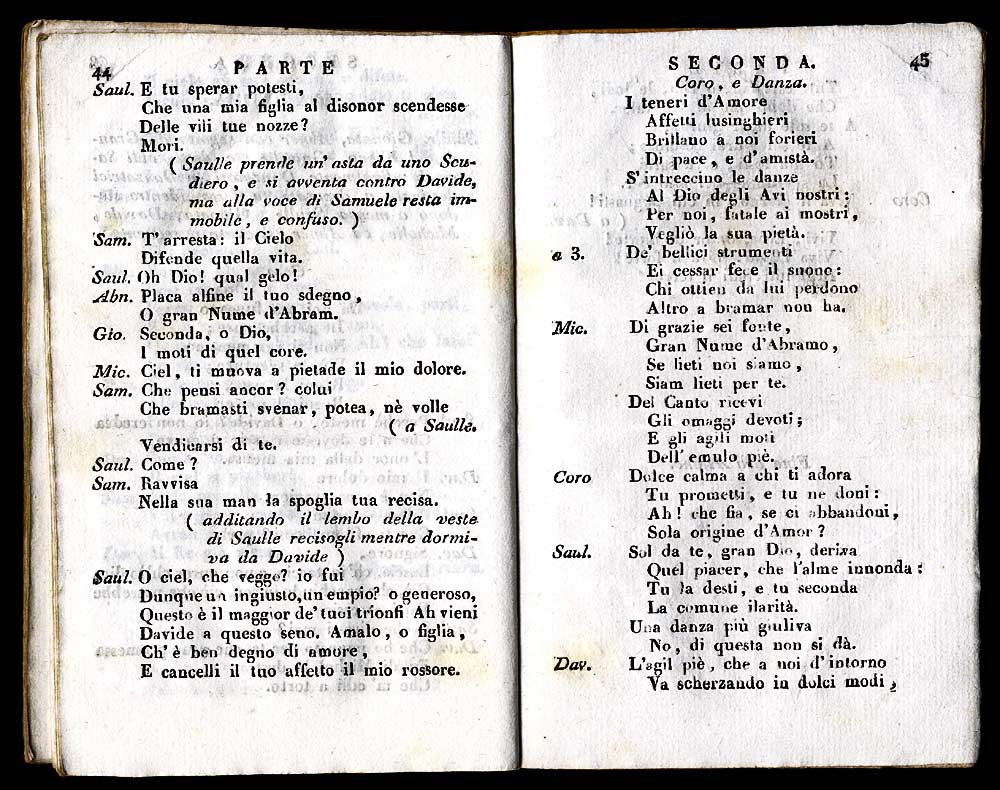 44
PARTE
Saul. E tu sperar potesti,
Che una mia figlia al disonor scendesse
Delle vili tue nozze?
Mori.
( Saulle prende un' asta da uno Scu-
diero, e si avventa contro Davide,
ma alla voce di Samuele resta im-
mobile, e confuso. )
Sam. T' arresta: il Cielo
Difende quella vita.
Saul. Oh Dio! qual gelo!
Abn. Placa alfine il tuo sdegno,
O gran Nume d'Abram.
Gio. Seconda, o Dio,
I moti di quel core.
Mic. Ciel, ti muova a pietade il mio dolore.
Sam. Che pensi ancor? colui
Che bramasti svenar, potea, nè volle
( a Saulle.
Vendicarsi di te.
Saul. Come?
Sam. Ravvisa
Nella sua man la spoglia tua recisa.
( additando il lembo della veste
di Saulle recisogli mentre dormi-
va da Davide )
Saul. O ciel, che veggo? io fui
Dunque un ingiusto, un empio? o generoso,
Questo è il maggior de' tuoi trionfi Ah vieni
Davide a questo seno. Amalo, o figlia,
Ch' è ben degno di amore,
E cancelli il tuo affetto il mio rossore.
SECONDA.
45
Coro, e Danza.
I teneri d'Amore
Affetti lusinghieri
Brillano a noi forieri
Di pace, e d'amistà.
S' intreccino le danze
Al Dio degli Avi nostri:
Per noi, fatale ai mostri,
Vegliò la sua pietà.
a 3. De' bellici strumenti
Ei cessar fece il suono:
Chi ottien da lui perdono
Altro a bramar non ha.
Mic. Di grazie sei fonte,
Gran Nume d'Abramo,
Se lieti noi siamo,
Siam lieti per te.
Del Canto ricevi
Gli omaggi devoti;
E gli agili moti
Dell' emulo piè.
Coro Dolce calma a chi ti adora
Tu prometti, e tu ne doni:
Ah! che fia, se ci abbandoni,
Sola origine d'Amor?
Saul. Sol da te, gran Dio, deriva
Quel piacer, che l'alme innonda:
Tu la desti, e tu seconda
La comune ilarità.
Una danza più giuliva
No, di questa non si dà.
Dav. L'agil piè, che a noi d'intorno
Va scherzando in dolci modi,